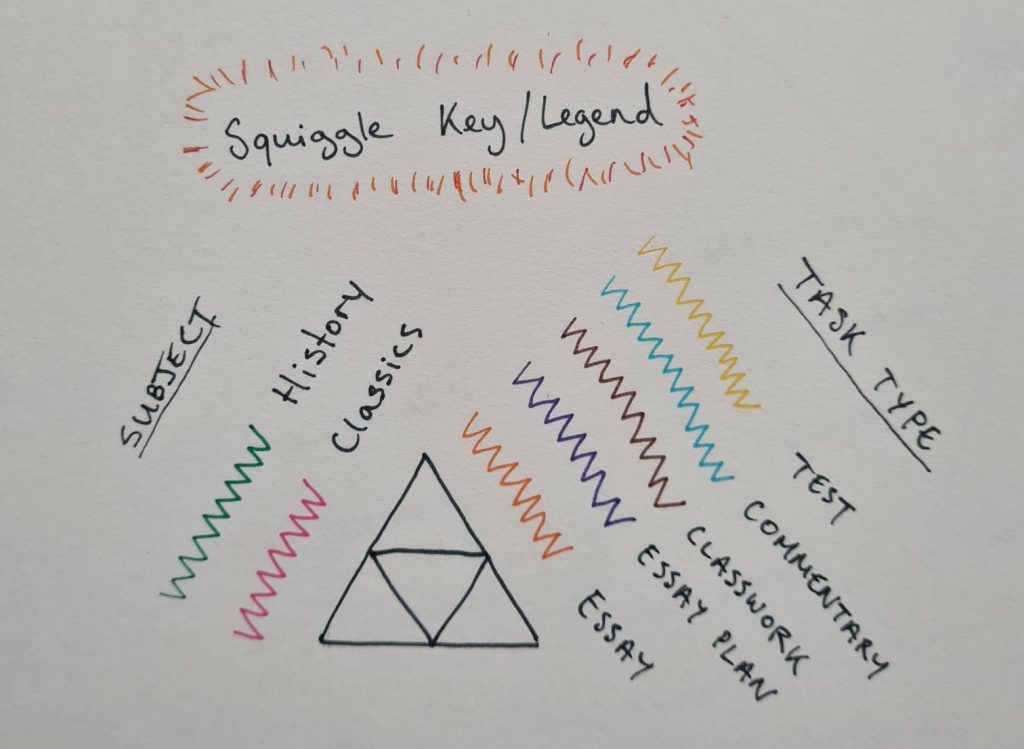 Squiggle Key/Legend
SUBJECT
History
Classics
TASK TYPE
TEST
COMMENTARY
CLASSWORK
ESSAY PLAN
ESSAY